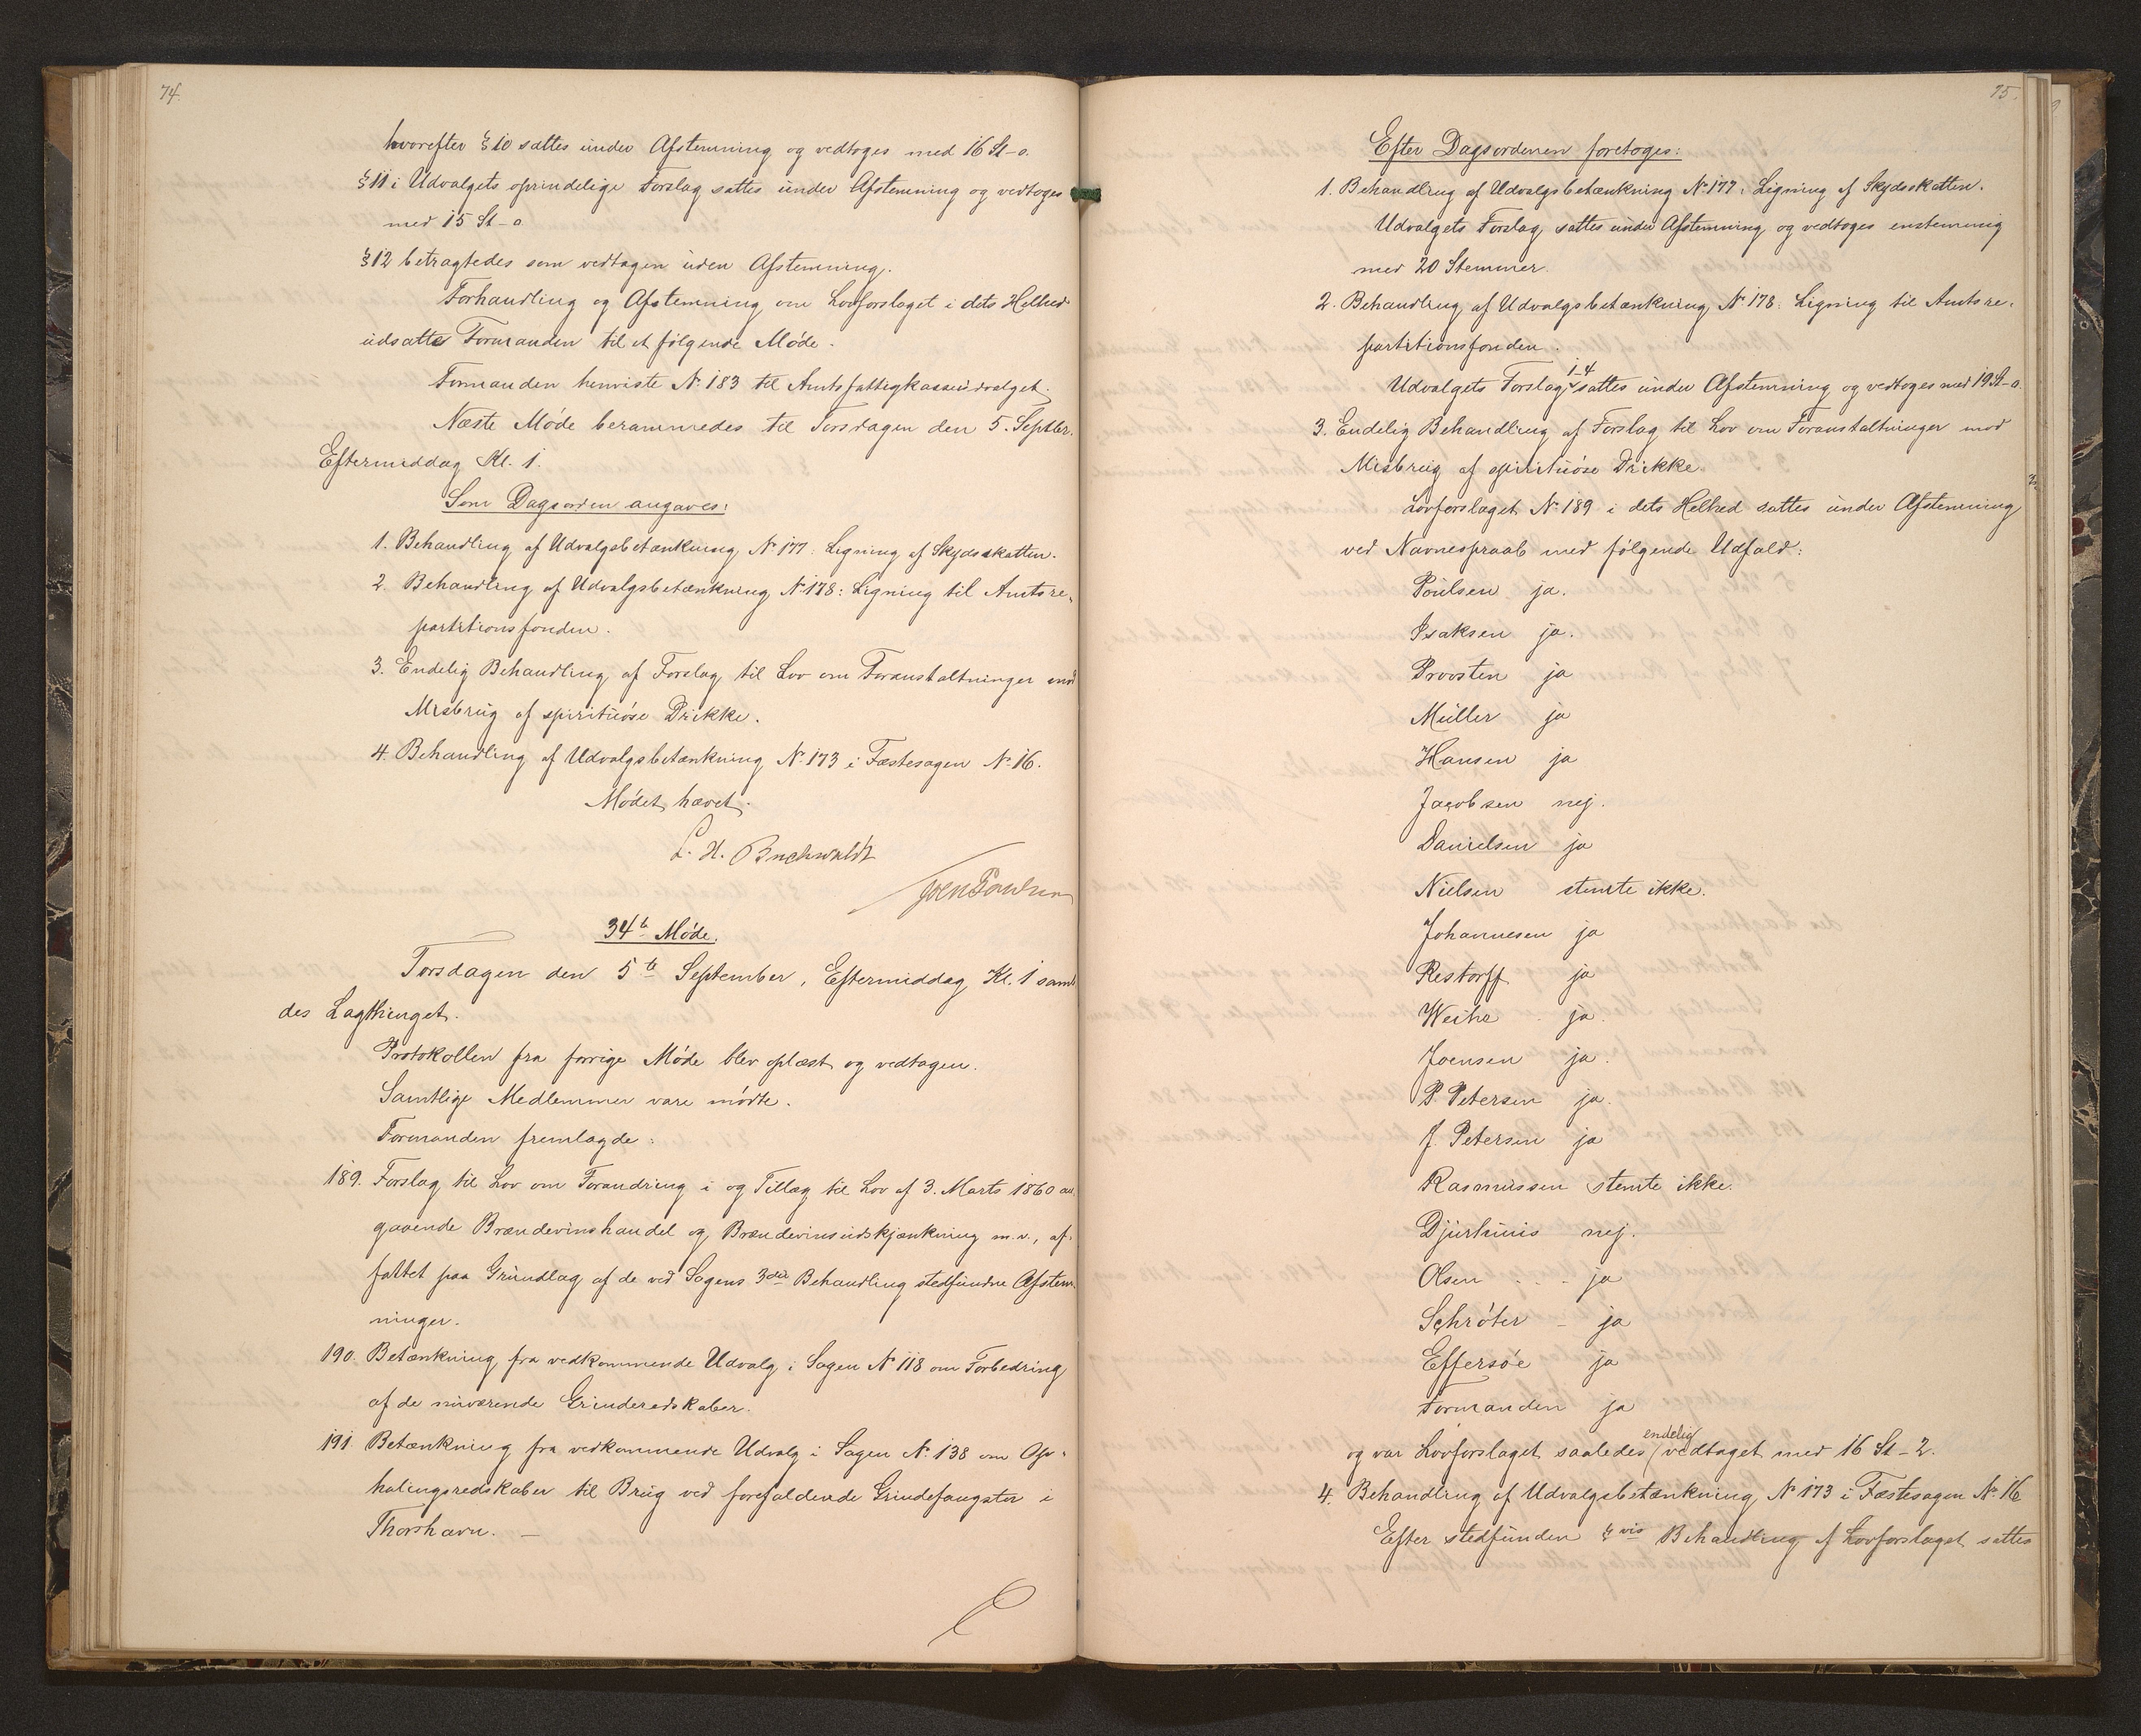 74.
hvorefter § 10 sattes under Afstemning og vedtoges med 16 St-0.
§ 11 i Udvalgets oprindelige Forslag sattes under Afstemning og vedtoges
med 15 St-0
§ 12 betragtedes som vedtagen uden Afstemning.
Forhandling og Afstemning om Lovforslaget i dets Helhed
udsatte Formanden til et følgende Møde.
Formanden henviste No 183 til Amtsfattigkasseudvalget.
Næste Møde berammedes til Torsdagen den 5. Septbr.
Eftermiddag Kl. 1.
Som Dagsorden angaves:
1. Behandling af Udvalgsbetænkning No 177: Ligning af Skydsskatten.
2. Behandling af Udvalgsbetænkning No 178: Ligning til Amtsre-
partitionsfonden.
3. Endelig Behandling af Forslag til Lov om Foranstaltninger mod
Misbrug af spirituøse Drikke.
4. Behandling af Udvalgsbetænkning No 173 i Fæstesagen No 16.
Mødet hævet.
L. H. Buchwaldt
Joen Poulsen
34te Møde.
Torsdagen den 5te September, Eftermiddag Kl. 1 sam-
des Lagthinget.
Protokollen fra forrige Møde blev oplæst og vedtagen.
Samtlige Medlemmer vare mødte.
Formanden fremlagde:
189. Forslag til Lov om Forandring i og Tillæg til Lov af 3. Marts 1860 an-
gaaende Brændevinshandel og Brændevinsudskjænkning m.v., af-
fattet paa Grundlag af de ved Sagens 3die Behandling stedfundne Afstem-
ninger.
190. Betænkning fra vedkommende Udvalg i Sagen No 118 om Forbedring
af de nuværende Grinderedskaber.
191. Betænkning fra vedkommende Udvalg i Sagen No 138 om Op-
halingsredskaber til Brug ved forefaldende Grindefangster i
Thorshavn. —
75.
Efter Dagsordenen foretoges:
1. Behandling af Udvalgsbetænkning No 177: Ligning af Skydsskatten.
Udvalgets Forslag sattes under Afstemning og vedtoges enstemmig
med 20 Stemmer.
2. Behandling af Udvalgsbetænkning No 178: Ligning til Amtsre-
partitionsfonden.
Udvalgets Forslag 1-4 sattes under Afstemning og vedtoges med 19 St-0.
3. Endelig Behandling af Forslag til Lov om Foranstaltninger mod
Misbrug af spirituøse Drikke.
Lovforslaget No 189 i dets Helhed sattes under Afstemning
ved Navneopraab med følgende Udfald:
Poulsen ja.
Isaksen ja.
Provsten ja
Müller ja
Hansen ja
Jacobsen nej.
Danielsen ja
Nielsen stemte ikke.
Johannesen ja
Restorff ja
Weihe ja.
Joensen ja.
P. Petersen ja.
J. Petersen ja
Rasmussen stemte ikke.
Djurhuus nej.
Olsen ja
Schrøter ja
Effersøe ja
Formanden ja
og var Lovforslaget saaledes endelig vedtaget med 16 St-2.
4. Behandling af Udvalgsbetænkning No 173 i Fæstesagen No 16
Efter stedfunden § vis Behandling af Lovforslaget sattes